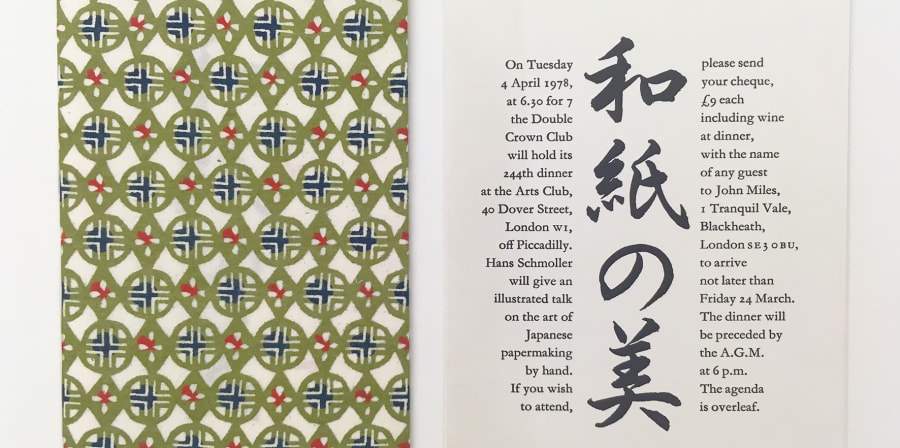 On Tuesday
4 April 1978,
at 6.30 for 7
the Double
Crown Club
will hold its
244th dinner
at the Arts Club,
40 Dover Street,
London W1,
off Piccadilly.
Hans Schmoller
will give an
illustrated talk
on the art of
Japanese
papermaking
by hand.
If you wish
to attend,
和紙の美
please send
your cheque,
£9 each
including wine
at dinner,
with the name
of any guest
to John Miles,
1 Tranquil Vale,
Blackheath,
London SE3 0BU,
to arrive
not later than
Friday 24 March.
The dinner will
be preceded by
the A.G.M.
at 6 p.m.
The agenda
is overleaf.